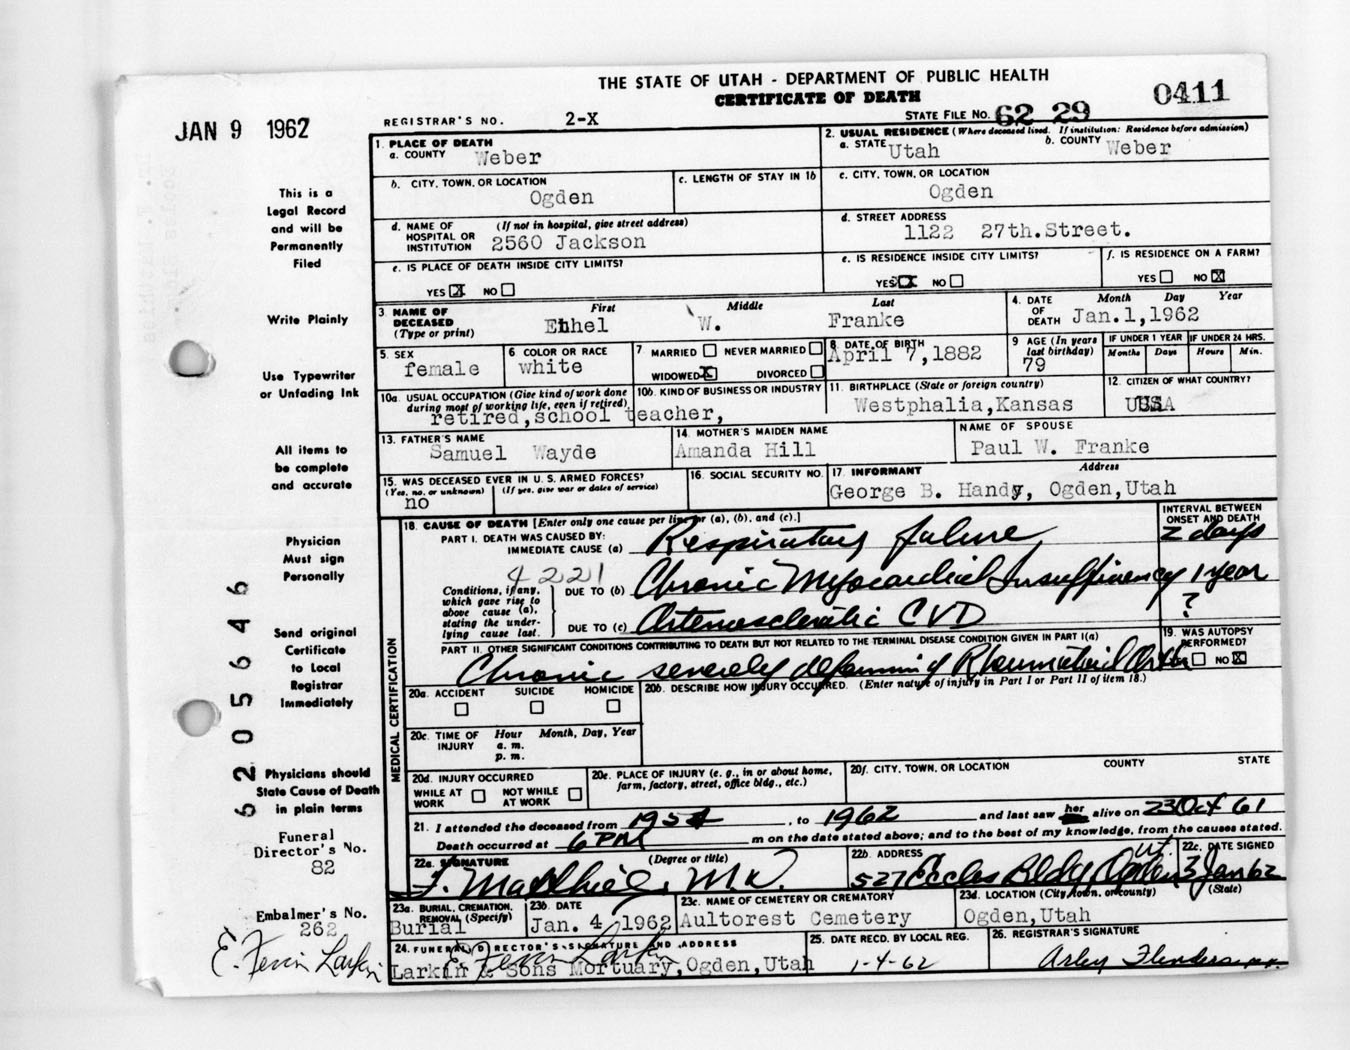 THE STATE OF UTAH - DEPARTMENT OF PUBLIC HEALTH
CERTIFICATE OF DEATH
0411
JAN 9 1962
REGISTRAR'S NO. 2-X
STATE FILE NO. 62 29
This is a
Legal Record
and will be
Permanently
Filed
Write Plainly
Use Typewriter
or Unfading Ink
All items to
be complete
and accurate
Physician
Must sign
Personally
Send original
Certificate
to Local
Registrar
Immediately
Physicians should
State Cause of Death
in plain terms
Funeral
Director's No.
82
Embalmer's No.
262
E. Fenin Larkin
6205646
1. PLACE OF DEATH
a. COUNTY Weber
2. USUAL RESIDENCE (Where deceased lived. If institution: Residence before admission)
a. STATE Utah b. COUNTY Weber
b. CITY, TOWN, OR LOCATION
Ogden
c. LENGTH OF STAY IN 1b
c. CITY, TOWN, OR LOCATION
Ogden
d. NAME OF HOSPITAL OR INSTITUTION (If not in hospital, give street address)
2560 Jackson
d. STREET ADDRESS
1122 27th.Street.
e. IS PLACE OF DEATH INSIDE CITY LIMITS?
YES X NO
e. IS RESIDENCE INSIDE CITY LIMITS?
YES X NO
f. IS RESIDENCE ON A FARM?
YES NO X
3. NAME OF DECEASED (Type or print)
First Middle Last
Ethel W. Franke
4. DATE OF DEATH Month Day Year
Jan.1,1962
5. SEX
female
6 COLOR OR RACE
white
7 MARRIED NEVER MARRIED
WIDOWED X DIVORCED
8. DATE OF BIRTH
April 7,1882
9 AGE (In years last birthday)
79
IF UNDER 1 YEAR
Months Days
IF UNDER 24 HRS.
Hours Min.
10a. USUAL OCCUPATION (Give kind of work done during most of working life, even if retired)
10b. KIND OF BUSINESS OR INDUSTRY
retired,school teacher,
11. BIRTHPLACE (State or foreign country)
Westphalia,Kansas
12. CITIZEN OF WHAT COUNTRY?
USA
13. FATHER'S NAME
Samuel Wayde
14. MOTHER'S MAIDEN NAME
Amanda Hill
NAME OF SPOUSE
Paul W. Franke
15. WAS DECEASED EVER IN U. S. ARMED FORCES?
(Yes, no, or unknown) (If yes, give war or dates of service)
no
16. SOCIAL SECURITY NO.
17. INFORMANT Address
George B. Handy, Ogden,Utah
MEDICAL CERTIFICATION
18. CAUSE OF DEATH [Enter only one cause per line for (a), (b), and (c).]
INTERVAL BETWEEN ONSET AND DEATH
PART I. DEATH WAS CAUSED BY:
IMMEDIATE CAUSE (a) Respiratory failure 2 days
4221
Conditions, if any, which gave rise to above cause (a), stating the underlying cause last.
DUE TO (b) Chronic Myocardial Insufficiency 1 year
DUE TO (c) Arteriosclerotic CVD ?
PART II. OTHER SIGNIFICANT CONDITIONS CONTRIBUTING TO DEATH BUT NOT RELATED TO THE TERMINAL DISEASE CONDITION GIVEN IN PART I(a)
Chronic severely deforming Rheumatoid Arth
19. WAS AUTOPSY PERFORMED?
NO X
20a. ACCIDENT SUICIDE HOMICIDE
20b. DESCRIBE HOW INJURY OCCURRED. (Enter nature of injury in Part I or Part II of item 18.)
20c. TIME OF INJURY Hour Month, Day, Year
a. m.
p. m.
20d. INJURY OCCURRED
WHILE AT WORK NOT WHILE AT WORK
20e. PLACE OF INJURY (e. g., in or about home, farm, factory, street, office bldg., etc.)
20f. CITY, TOWN, OR LOCATION COUNTY STATE
21. I attended the deceased from 1954, to 1962 and last saw her alive on 23 Oct 61
Death occurred at 6 PM m on the date stated above; and to the best of my knowledge, from the causes stated.
22a. SIGNATURE (Degree or title)
M.D.
22b. ADDRESS
527 Eccles Bldg Ogden Ut.
22c. DATE SIGNED
3 Jan 62
23a. BURIAL, CREMATION, REMOVAL (Specify)
Burial
23b. DATE
Jan. 4, 1962
23c. NAME OF CEMETERY OR CREMATORY
Aultorest Cemetery
23d. LOCATION (City, town, or county) (State)
Ogden,Utah
24. FUNERAL DIRECTOR'S SIGNATURE AND ADDRESS
E. Fenin Larkin
Larkin & Sons Mortuary,Ogden,Utah
25. DATE RECD. BY LOCAL REG.
1-4-62
26. REGISTRAR'S SIGNATURE